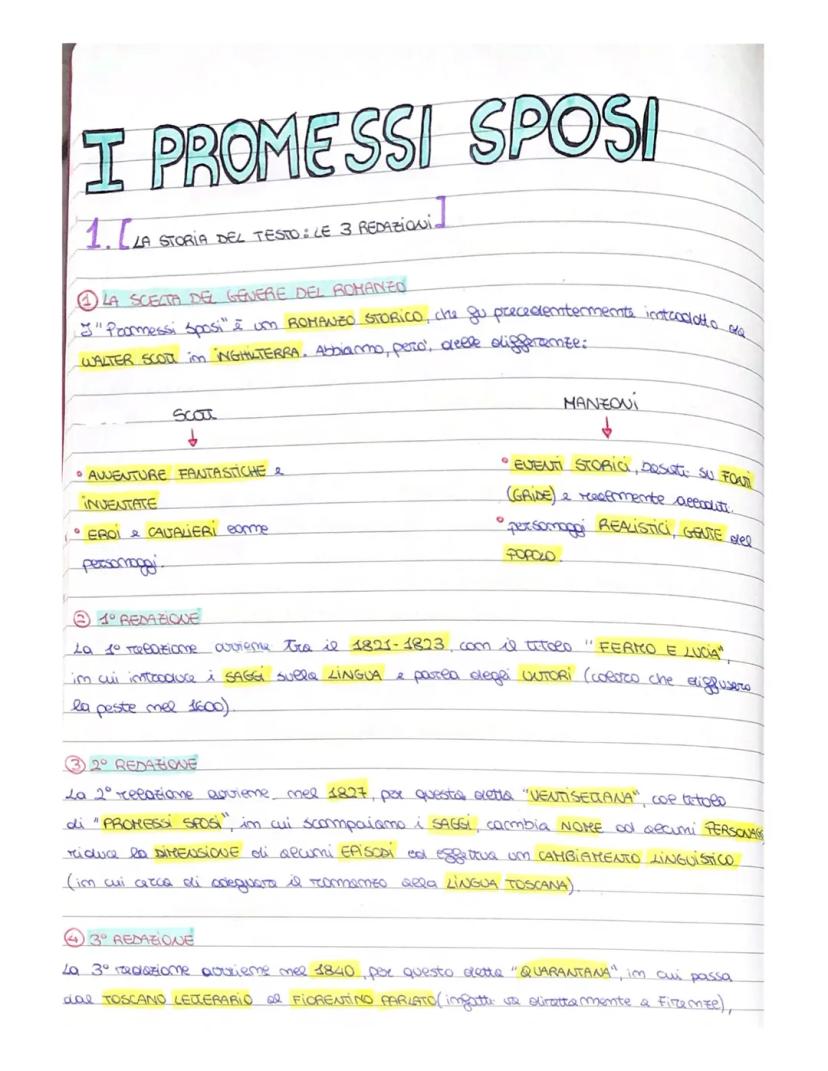 I PROMESSI SPOSI
1. [LA STORIA DEL TESTO: LE 3 REDAZIONI]
① LA SCELTA DEL GENERE DEL ROMANZO
I "Promessi Sposi" è un ROMANZO STORICO, che fu precedentemente introdotto da
WALTER SCOTT in INGHILTERRA. Abbiamo, però, delle differenze:
SCOTT
↓
• AVVENTURE FANTASTICHE e
INVENTATE
• EROI e CAVALIERI come
personaggi.
MANZONI
↓
• EVENTI STORICI, basati su FONTI
(GRIDE) e realmente accaduti.
• personaggi REALISTICI, GENTE del
POPOLO.
② 1° REDAZIONE
La 1° relazione avviene tra il 1821-1823, con il titolo "FERMO E LUCIA",
in cui introduce i SAGGI sulla LINGUA e parla degli UNTORI (coloro che diffusero
la peste nel 1600).
③ 2° REDAZIONE
La 2° relazione avviene nel 1827, per questo detta "VENTISETTANA", col titolo
di "PROMESSI SPOSI", in cui scompaiono i SAGGI, cambia NOME ad alcuni PERSONAGGI
riduce la DIMENSIONE di alcuni EPISODI ed effettua un CAMBIAMENTO LINGUISTICO
(in cui cerca di adeguare il romanzo alla LINGUA TOSCANA).
④ 3° REDAZIONE
La 3° redazione avviene nel 1840, per questo detta "QUARANTANA", in cui passa
dal TOSCANO LETTERARIO al FIORENTINO PARLATO (infatti va direttamente a Firenze),